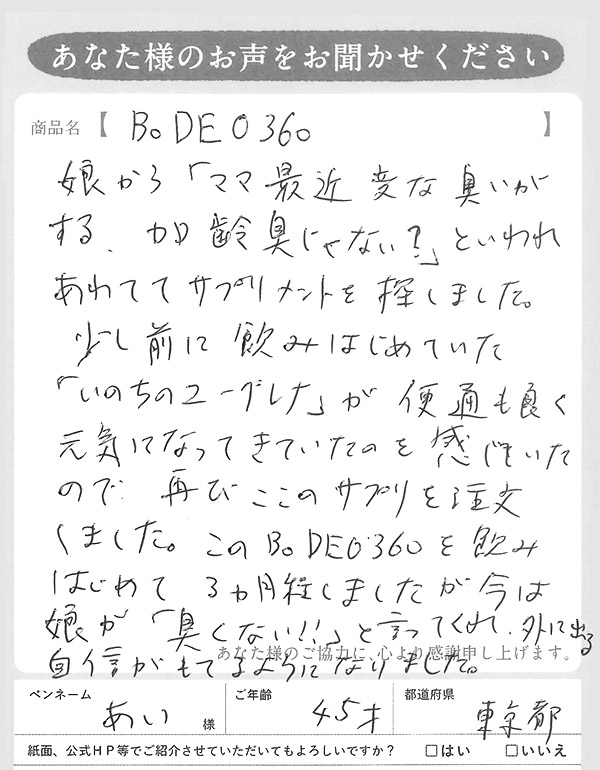 あなた様のお声をお聞かせください
商品名【 BoDEO360 】
娘から「ママ最近変な臭いが
する、加齢臭じゃない?」といわれ
あわててサプリメントを探しました。
少し前に飲みはじめていた
「いのちのユーグレナ」が便通も良く
元気になってきていたのを感じていた
ので再びここのサプリを注文
しました。このBoDEO360を飲み
はじめて3ヵ月程しましたが今は
娘が「臭くない!!」と言ってくれ、外に出る
あなた様のご協力に、心より感謝申し上げます。
自信がもてるようになりました。
ペンネーム ご年齢 都道府県
あい 様 45才 東京都
紙面、公式HP等でご紹介させていただいてもよろしいですか? □はい □いいえ